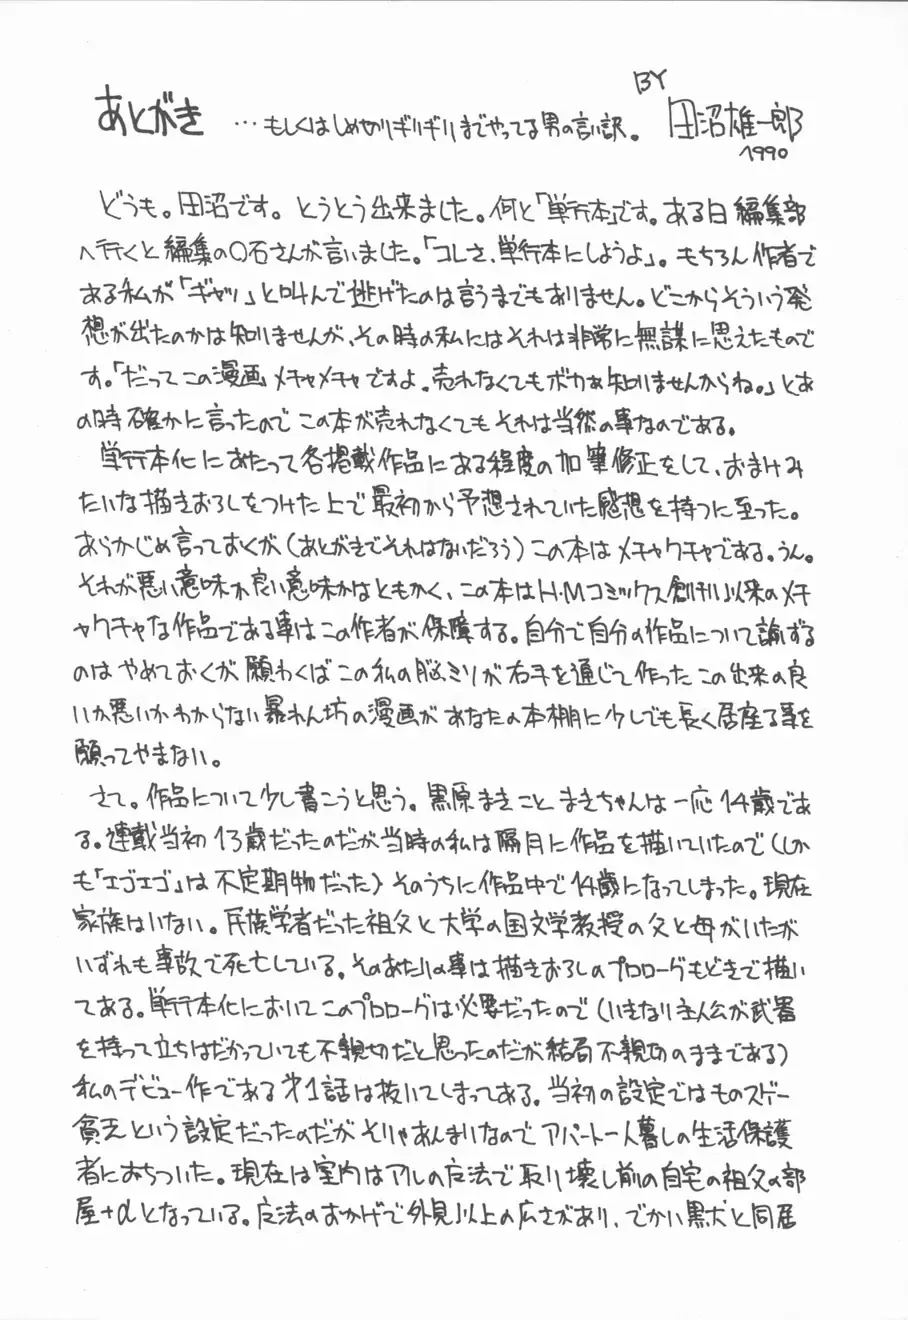 あとがき …もしくはしめ切りギリギリまでやってる男の言い訳。 BY 田沼雄一郎
1990
どうも。田沼です。とうとう出来ました。何と「単行本」です。ある日編集部
へ行くと編集の〇石さんが言いました。「コレさ、単行本にしようよ」。もちろん作者で
ある私が「ギャッ」と叫んで逃げたのは言うまでもありません。どこからそういう発
想が出たのかは知りませんが、その時の私にはそれは非常に無謀に思えたもので
す。「だってこの漫画メチャメチャですよ。売れなくてもボカぁ知りませんからね。」とあ
の時確かに言ったのでこの本が売れなくてもそれは当然の事なのである。
単行本化にあたって各掲載作品にある程度の加筆修正をして、おまけみ
たいな描きおろしをつけた上で最初から予想されていた感想を持つに至った。
あらかじめ言っておくが(あとがきでそれはないだろう)この本はメチャクチャである。うん。
それが悪い意味か良い意味かはともかく、この本はH・Mコミックス創刊以来のメチ
ャクチャな作品である事はこの作者が保障する。自分で自分の作品について論ずる
のはやめておくが願わくばこの私の脳ミソが右手を通じて作ったこの出来の良
いか悪いかわからない暴れん坊の漫画があなたの本棚に少しでも長く居座る事を
願ってやまない。
さて。作品について少し書こうと思う。黒原まきことまきちゃんは一応14歳であ
る。連載当初13歳だったのだが当時の私は隔月に作品を描いていたので(しか
も「エゴエゴ」は不定期物だった)そのうちに作品中で14歳になってしまった。現在
家族はいない。民族学者だった祖父と大学の国文学教授の父と母がいたが
いずれも事故で死亡している。そのあたりの事は描きおろしのプロローグもどきで描い
てある。単行本化においてこのプロローグは必要だったので(いきなり主人公が武器
を持って立ちはだかっていても不親切だと思ったのだが結局不親切のままである)
私のデビュー作である第1話は抜いてしまってある。当初の設定ではものスゲー
貧乏という設定だったのだがそりゃあんまりなのでアパート一人暮しの生活保護
者におちついた。現在は室内はアルの魔法で取り壊し前の自宅の祖父の部
屋+αとなっている。魔法のおかげで外見以上の広さがあり、でかい黒犬と同居